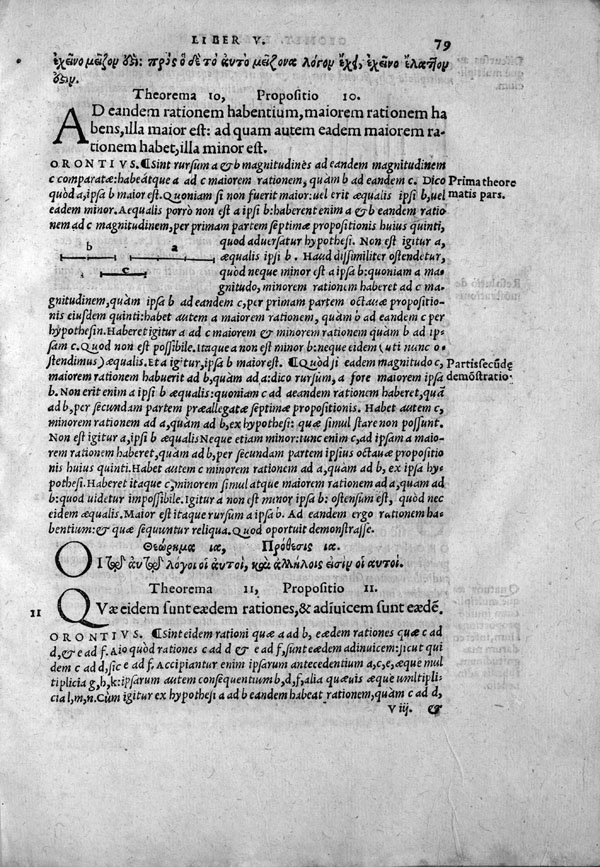 LIBER V. 79
ἐκεῖνο μεῖζον ὅτι: πρὸς ὃ δὲ τὸ αὐτὸ μείζονα λόγον ἔχῃ, ἐκεῖνο ἔλαττον
Theorema 10, Propositio 10.
AD eandem rationem habentium, maiorem rationem ha
bens, illa maior est: ad quam autem eadem maiorem ra-
tionem habet, illa minor est.
ORONTIVS. ¶Sint rursum a & b magnitudines ad eandem magnitudinem
c comparatæ: habeátque a ad c maiorem rationem, quàm b ad eandem c. Dico
Prima theore
quòd a, ipsa b maior est. Quoniam si non fuerit maior: uel erit æqualis ipsi b, uel
matis pars.
eadem minor. Aequalis porrò non est a ipsi b: haberent enim a & b eandem ratio
nem ad c magnitudinem, per primam partem septimæ propositionis huius quinti,
quod aduersatur hypothesi. Non est igitur a,
b a
æqualis ipsi b. Haud dissimiliter ostendetur,
quòd neque minor est a ipsa b: quoniam a ma-
c
gnitudo, minorem rationem haberet ad c ma-
gnitudinem, quàm ipsa b ad eandem c, per primam partem octauæ propositio-
nis eiusdem quinti: habet autem a maiorem rationem, quàm b ad eandem c per
hypothesin. Haberet igitur a ad c maiorem & minorem rationem quàm b ad ip-
sam c. Quod non est possibile. Itaque a non est minor b: neque eidem (uti nunc o-
stendimus) æqualis. Et a igitur, ipsa b maior est. ¶Quòd si eadem magnitudo c,
Partis secūdę
maiorem rationem habuerit ad b, quàm ad a: dico rursum, a fore maiorem ipsa
demōstratio.
b. Non erit enim a ipsi b æqualis: quoniam c ad a eandem rationem haberet, quā
ad b, per secundam partem præallegatæ septimæ propositionis. Habet autem c,
minorem rationem ad a, quàm ad b, ex hypothesi: quæ simul stare non possunt.
Non est igitur a, ipsi b æqualis Neque etiam minor: tunc enim c, ad ipsam a maio-
rem rationem haberet, quàm ad b, per secundam partem ipsius octauæ propositio
nis huius quinti. Habet autem c minorem rationem ad a, quàm ad b, ex ipsa hy-
pothesi. Haberet itaque c, minorem simul atque maiorem rationem ad a, quàm ad
b: quod uidetur impossibile. Igitur a non est minor ipsa b: ostensum est, quòd nec
eidem æqualis. Maior est itaque rursum a ipsa b. Ad eandem ergo rationem ha-
bentium: & quæ sequuntur reliqua. Quod oportuit demonstrasse.
Θεώρημα ια, Πρόθεσις ια.
ΟΙ τῷ αὐτῷ λόγοι οἱ αὐτοὶ, καὶ ἀλλήλοις εἰσὶν οἱ αὐτοί.
Theorema 11, Propositio 11.
11 QVæ eidem sunt eædem rationes, & adiuicem sunt eædē.
ORONTIVS. ¶Sint eidem rationi quæ a ad b, eædem rationes quæ c ad
d, & e ad f. Aio quòd rationes c ad d & e ad f, sunt eædem adinuicem: sicut qui
dem c ad d, sic e ad f. Accipiantur enim ipsarum antecedentium a, c, e, æque mul
tiplicia g, h, k: ipsarum autem consequentium b, d, f, alia quæuis æque umltipli-
cia l, m, n. Cùm igitur ex hypothesi a ad b eandem habeat rationem, quàm c ad d,
V iij. &